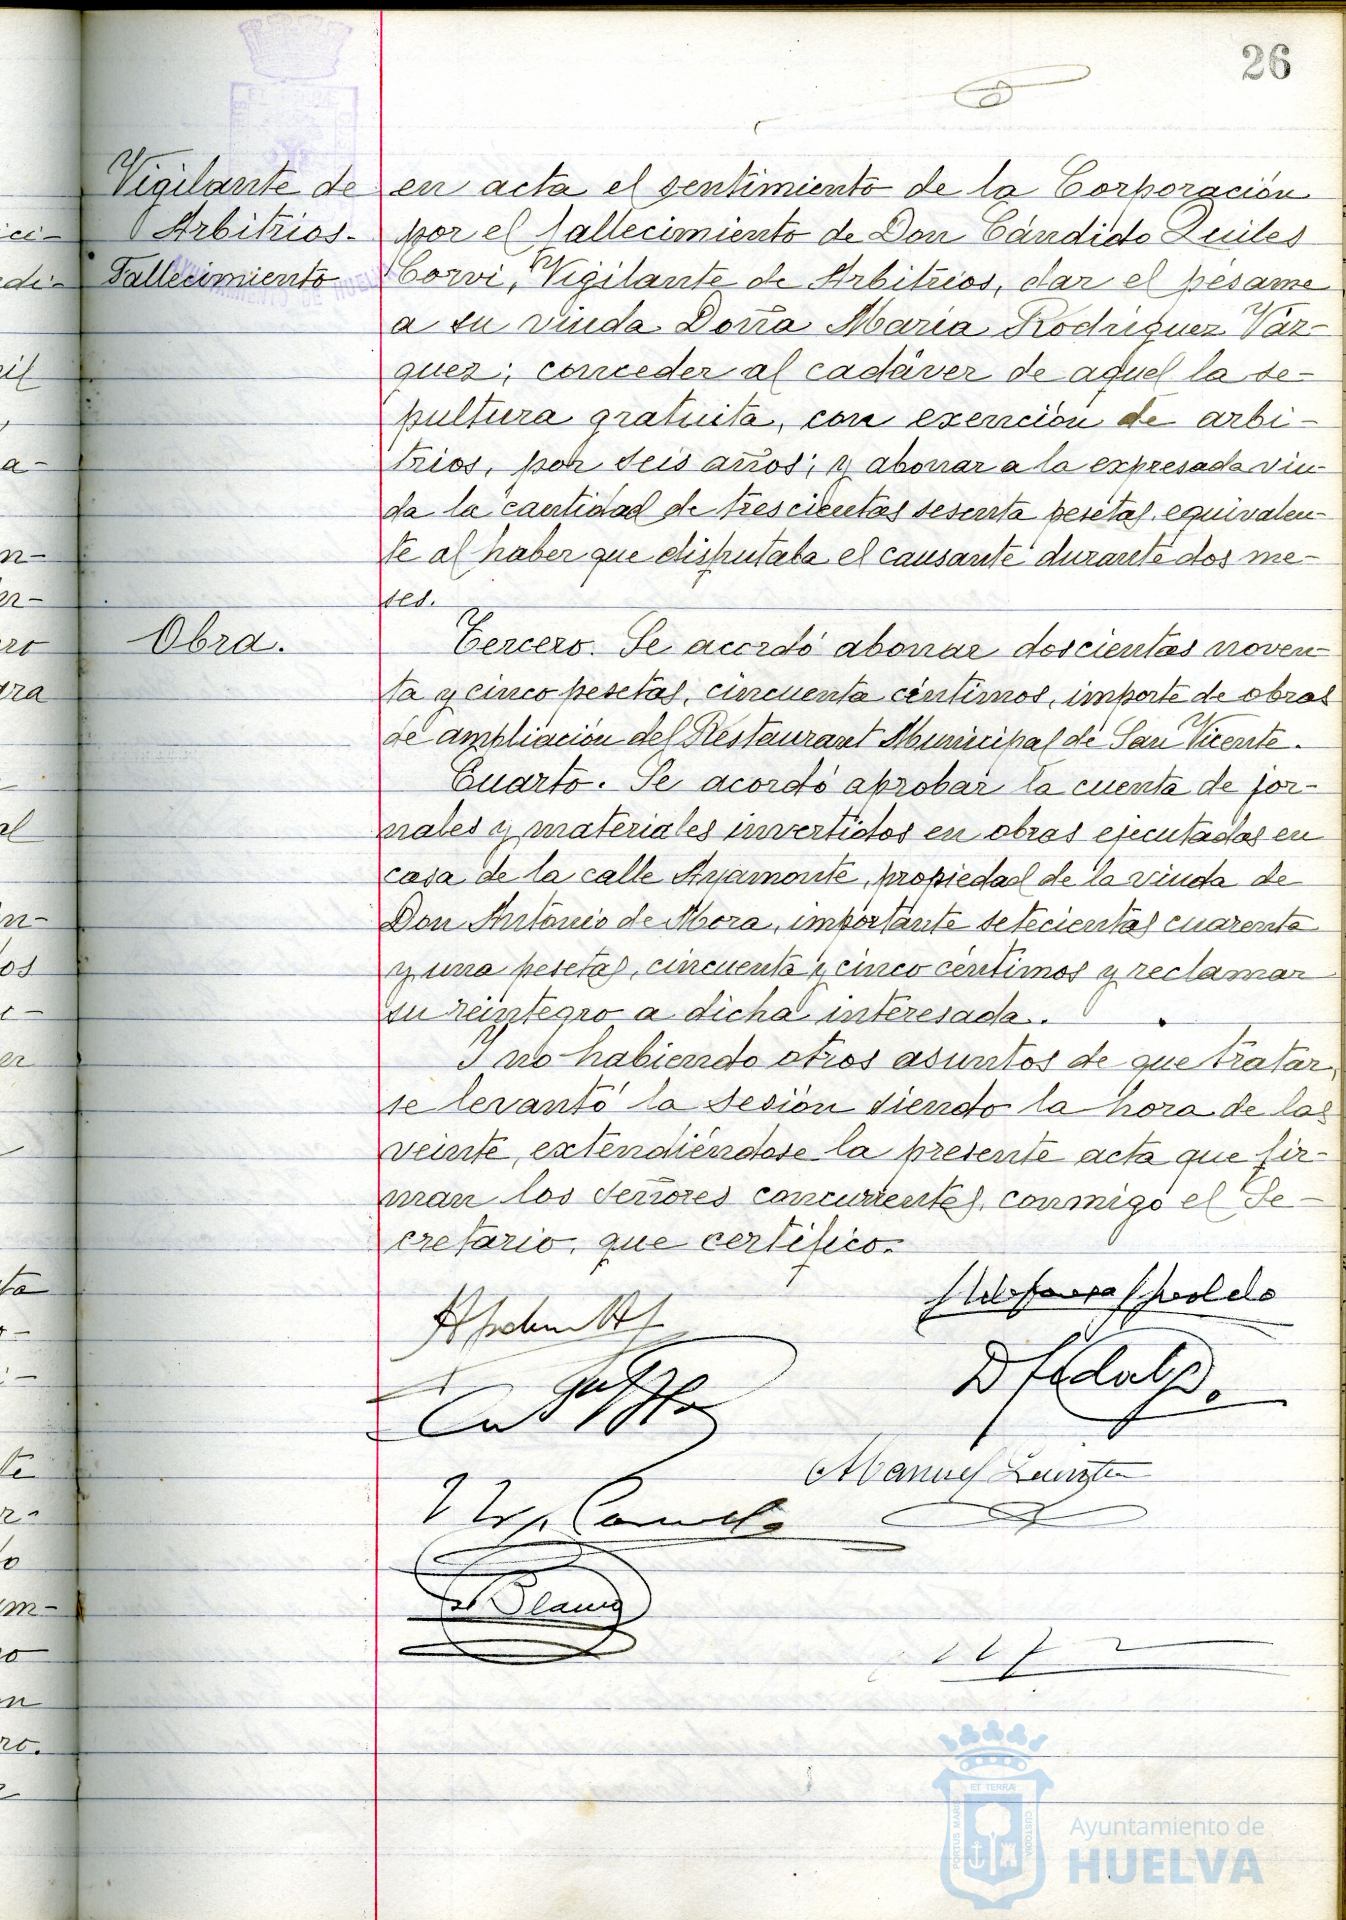 26
Vigilante de
Arbitrios.
Fallecimiento
en acta el sentimiento de la Corporación
por el fallecimiento de Don Cándido Quiles
Corvi, Vigilante de Arbitrios, dar el pésame
a su viuda Doña María Rodríguez Váz-
quez; conceder al cadáver de aquel la se-
pultura gratuita, con exención de arbi-
trios, por seis años; y abonar a la expresada viu-
da la cantidad de trescientas sesenta pesetas, equivalen-
te al haber que disfrutaba el causante durante dos me-
ses.
Obra.
Tercero. Se acordó abonar doscientas noven-
ta y cinco pesetas, cincuenta céntimos, importe de obras
de ampliación del Restaurant Municipal de San Vicente.
Cuarto. Se acordó aprobar la cuenta de jor-
nales y materiales invertidos en obras ejecutadas en
casa de la calle Ayamonte, propiedad de la viuda de
Don Antonio de Mora, importante setecientas cuarenta
y una pesetas, cincuenta y cinco céntimos y reclamar
su reintegro a dicha interesada.
Y no habiendo otros asuntos de que tratar,
se levantó la sesión siendo la hora de las
veinte, extendiéndose la presente acta que fir-
man los señores concurrentes, conmigo el Se-
cretario, que certifico.
D Hidalgo
Manuel
Blanco
ET TERRA
PORTUS MARIS
CUSTODIA
Ayuntamiento de
HUELVA